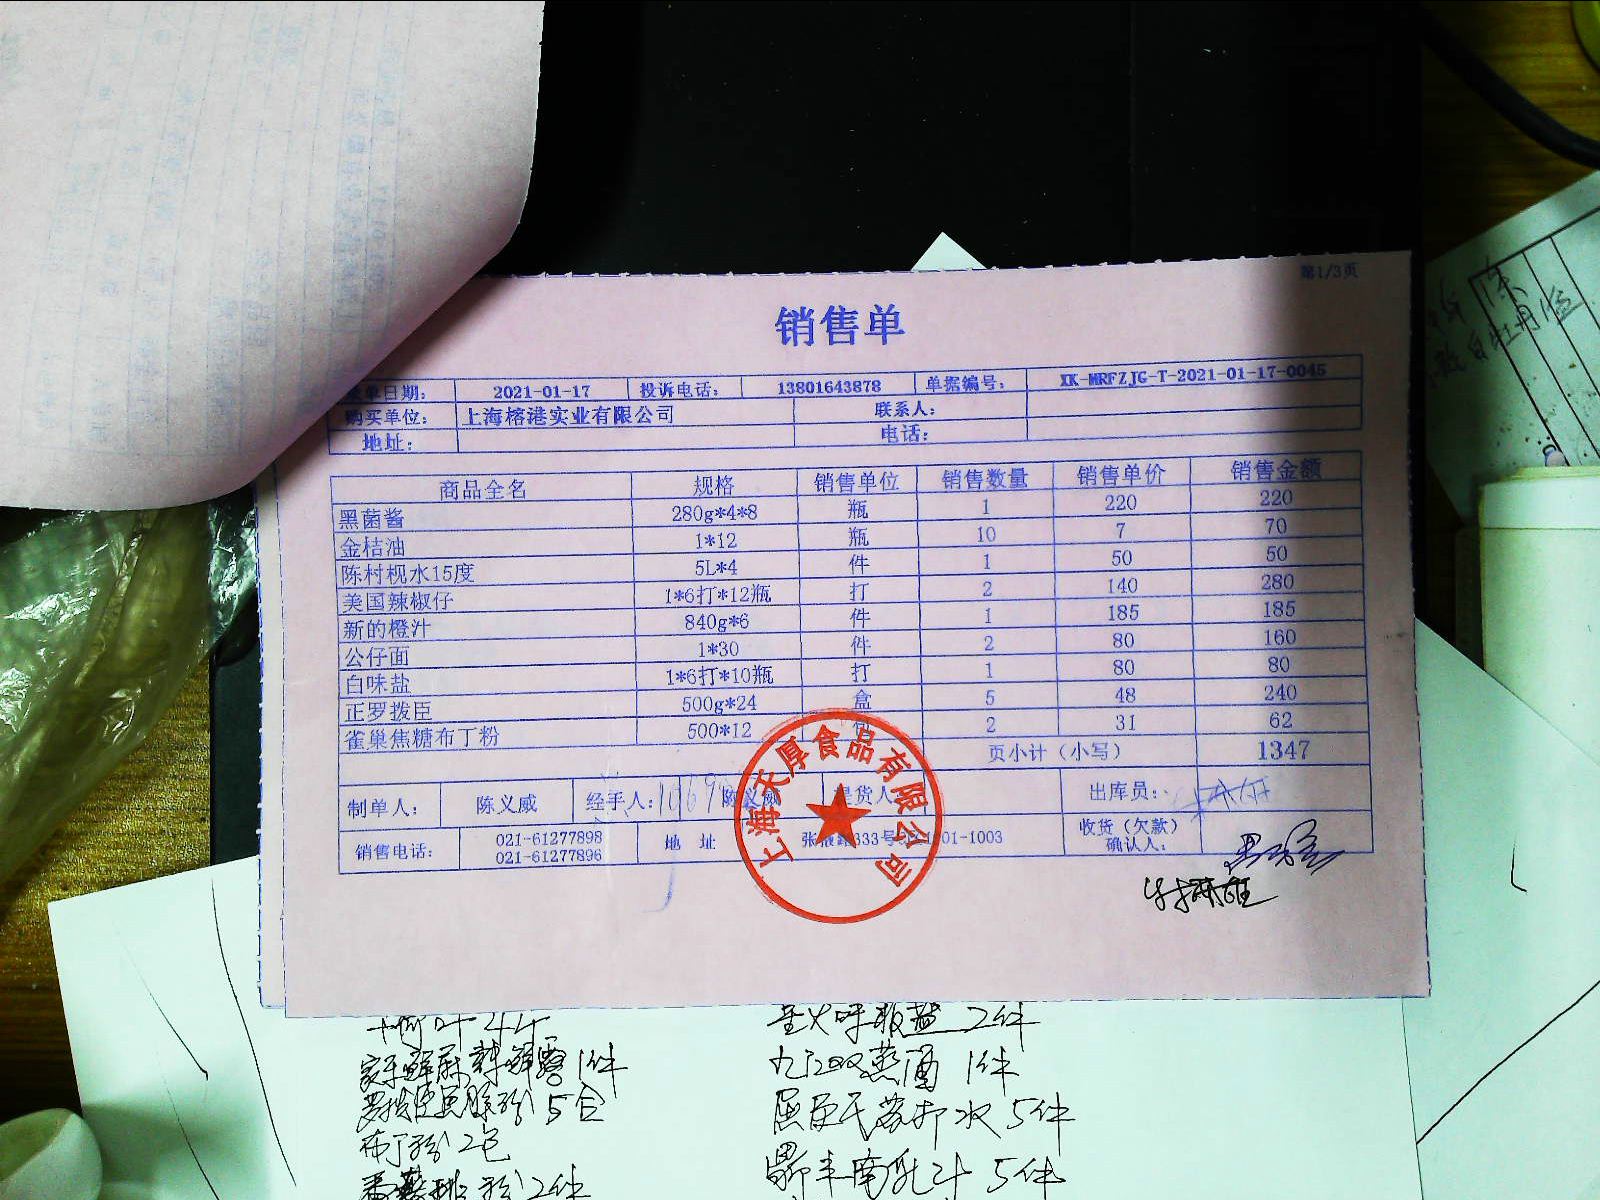 第1/3页
销售单
录单日期： 2021-01-17 投诉电话： 13801643878 单据编号： XK-MRFZJG-T-2021-01-17-0045
购买单位： 上海榕港实业有限公司 联系人：
地址： 电话：
商品全名 规格 销售单位 销售数量 销售单价 销售金额
黑菌酱 280g*4*8 瓶 1 220 220
金桔油 1*12 瓶 10 7 70
陈村枧水15度 5L*4 件 1 50 50
美国辣椒仔 1*6打*12瓶 打 2 140 280
新的橙汁 840g*6 件 1 185 185
公仔面 1*30 件 2 80 160
白味盐 1*6打*10瓶 打 1 80 80
正罗拨臣 500g*24 盒 5 48 240
雀巢焦糖布丁粉 500*12 包 2 31 62
页小计（小写） 1347
制单人： 陈义威 经手人： 陈义威 提货人 出库员：
销售电话： 021-61277898 地 址 收货（欠款）
021-61277896 确认人：
上海天厚食品有限公司
2件
1件 九江双蒸酒 1件
5合 5件
布丁粉2包 南乳汁 5件
2件